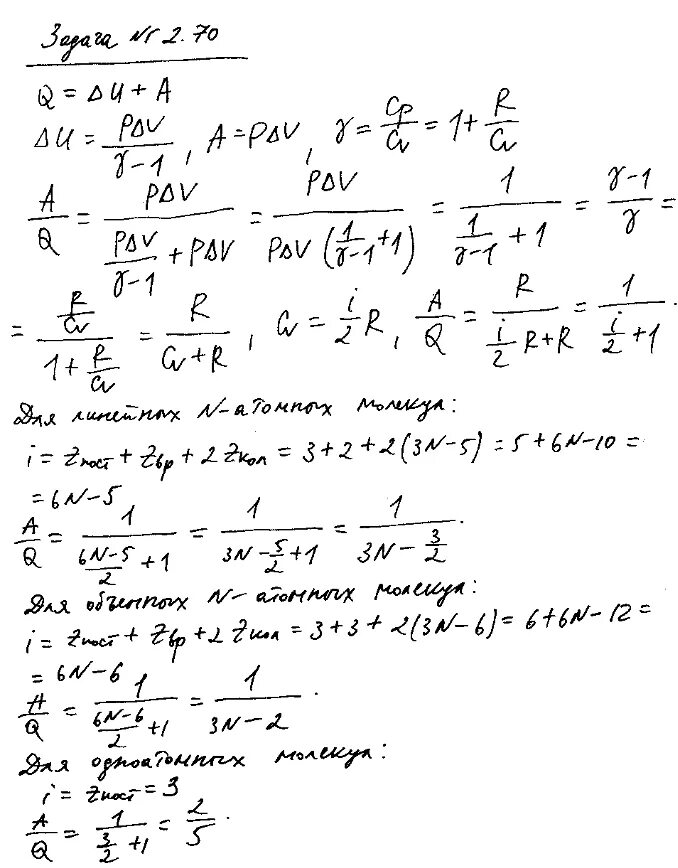 Задача №2.70
Q = ΔU + A
ΔU = PΔV/(γ-1), A = PΔV, γ = Cp/Cv = 1 + R/Cv
A/Q = PΔV/(PΔV/(γ-1) + PΔV) = PΔV/(PΔV(1/(γ-1) + 1)) = 1/(1/(γ-1) + 1) = (γ-1)/γ =
= (R/Cv)/(1 + R/Cv) = R/(Cv + R), Cv = i/2 R, A/Q = R/(i/2 R + R) = 1/(i/2 + 1).
Для линейных N-атомных молекул:
i = Zпост + Zвр + 2 Zкол = 3 + 2 + 2(3N-5) = 5 + 6N - 10 =
= 6N - 5
A/Q = 1/((6N-5)/2 + 1) = 1/(3N - 5/2 + 1) = 1/(3N - 3/2).
Для объемных N-атомных молекул:
i = Zпост + Zвр + 2 Zкол = 3 + 3 + 2(3N-6) = 6 + 6N - 12 =
= 6N - 6
A/Q = 1/((6N-6)/2 + 1) = 1/(3N - 2).
Для одноатомных молекул:
i = Zпост = 3
A/Q = 1/(3/2 + 1) = 2/5.